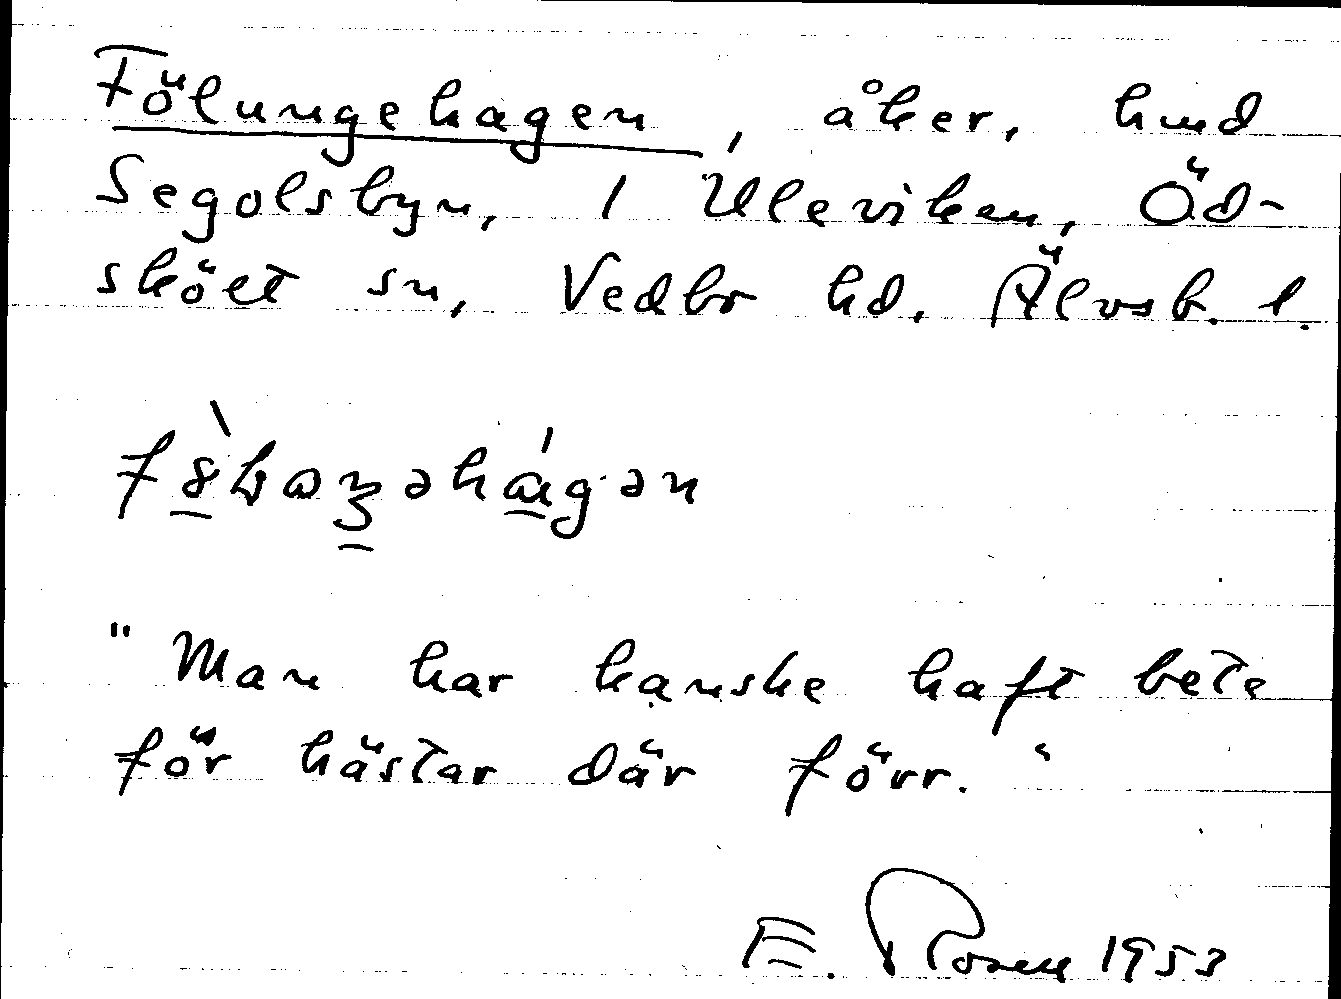 Fölungehagen, åker, hmd
Segolsbyn, 1 Uleviken, Öd-
sköLt sn, Vedbo hd. Älvsb. l.
"Man har kanske haft bete
för hästar där förr."
E. Rosen 1953